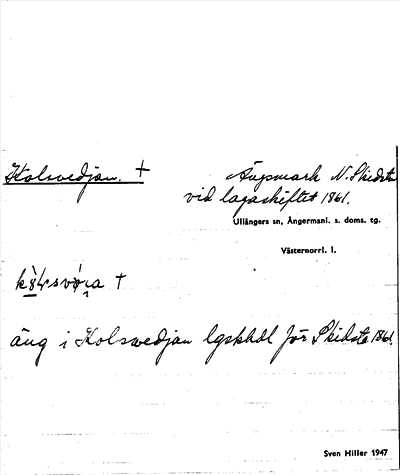 Kolsvedjan. †
Ängsmark N. Skidsta
vid lagaskiftet 1861.
Ullångers sn, Ångermanl. s. doms. tg.
Västernorrl. l.
†
äng i Kolswedjan lgskhdl för Skidsta 1861.
Sven Hiller 1947